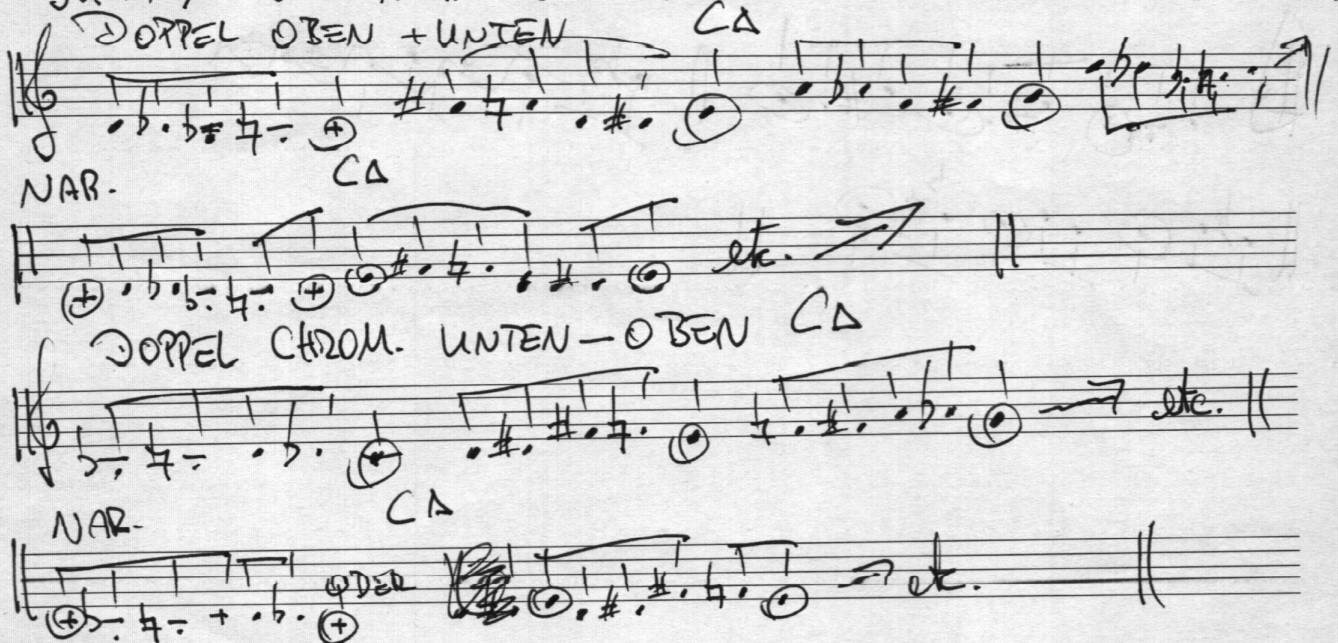 DOPPEL OBEN + UNTEN CΔ
NAR. CΔ
etc.
DOPPEL CHROM. UNTEN – OBEN CΔ
etc.
NAR- CΔ
ODER etc.